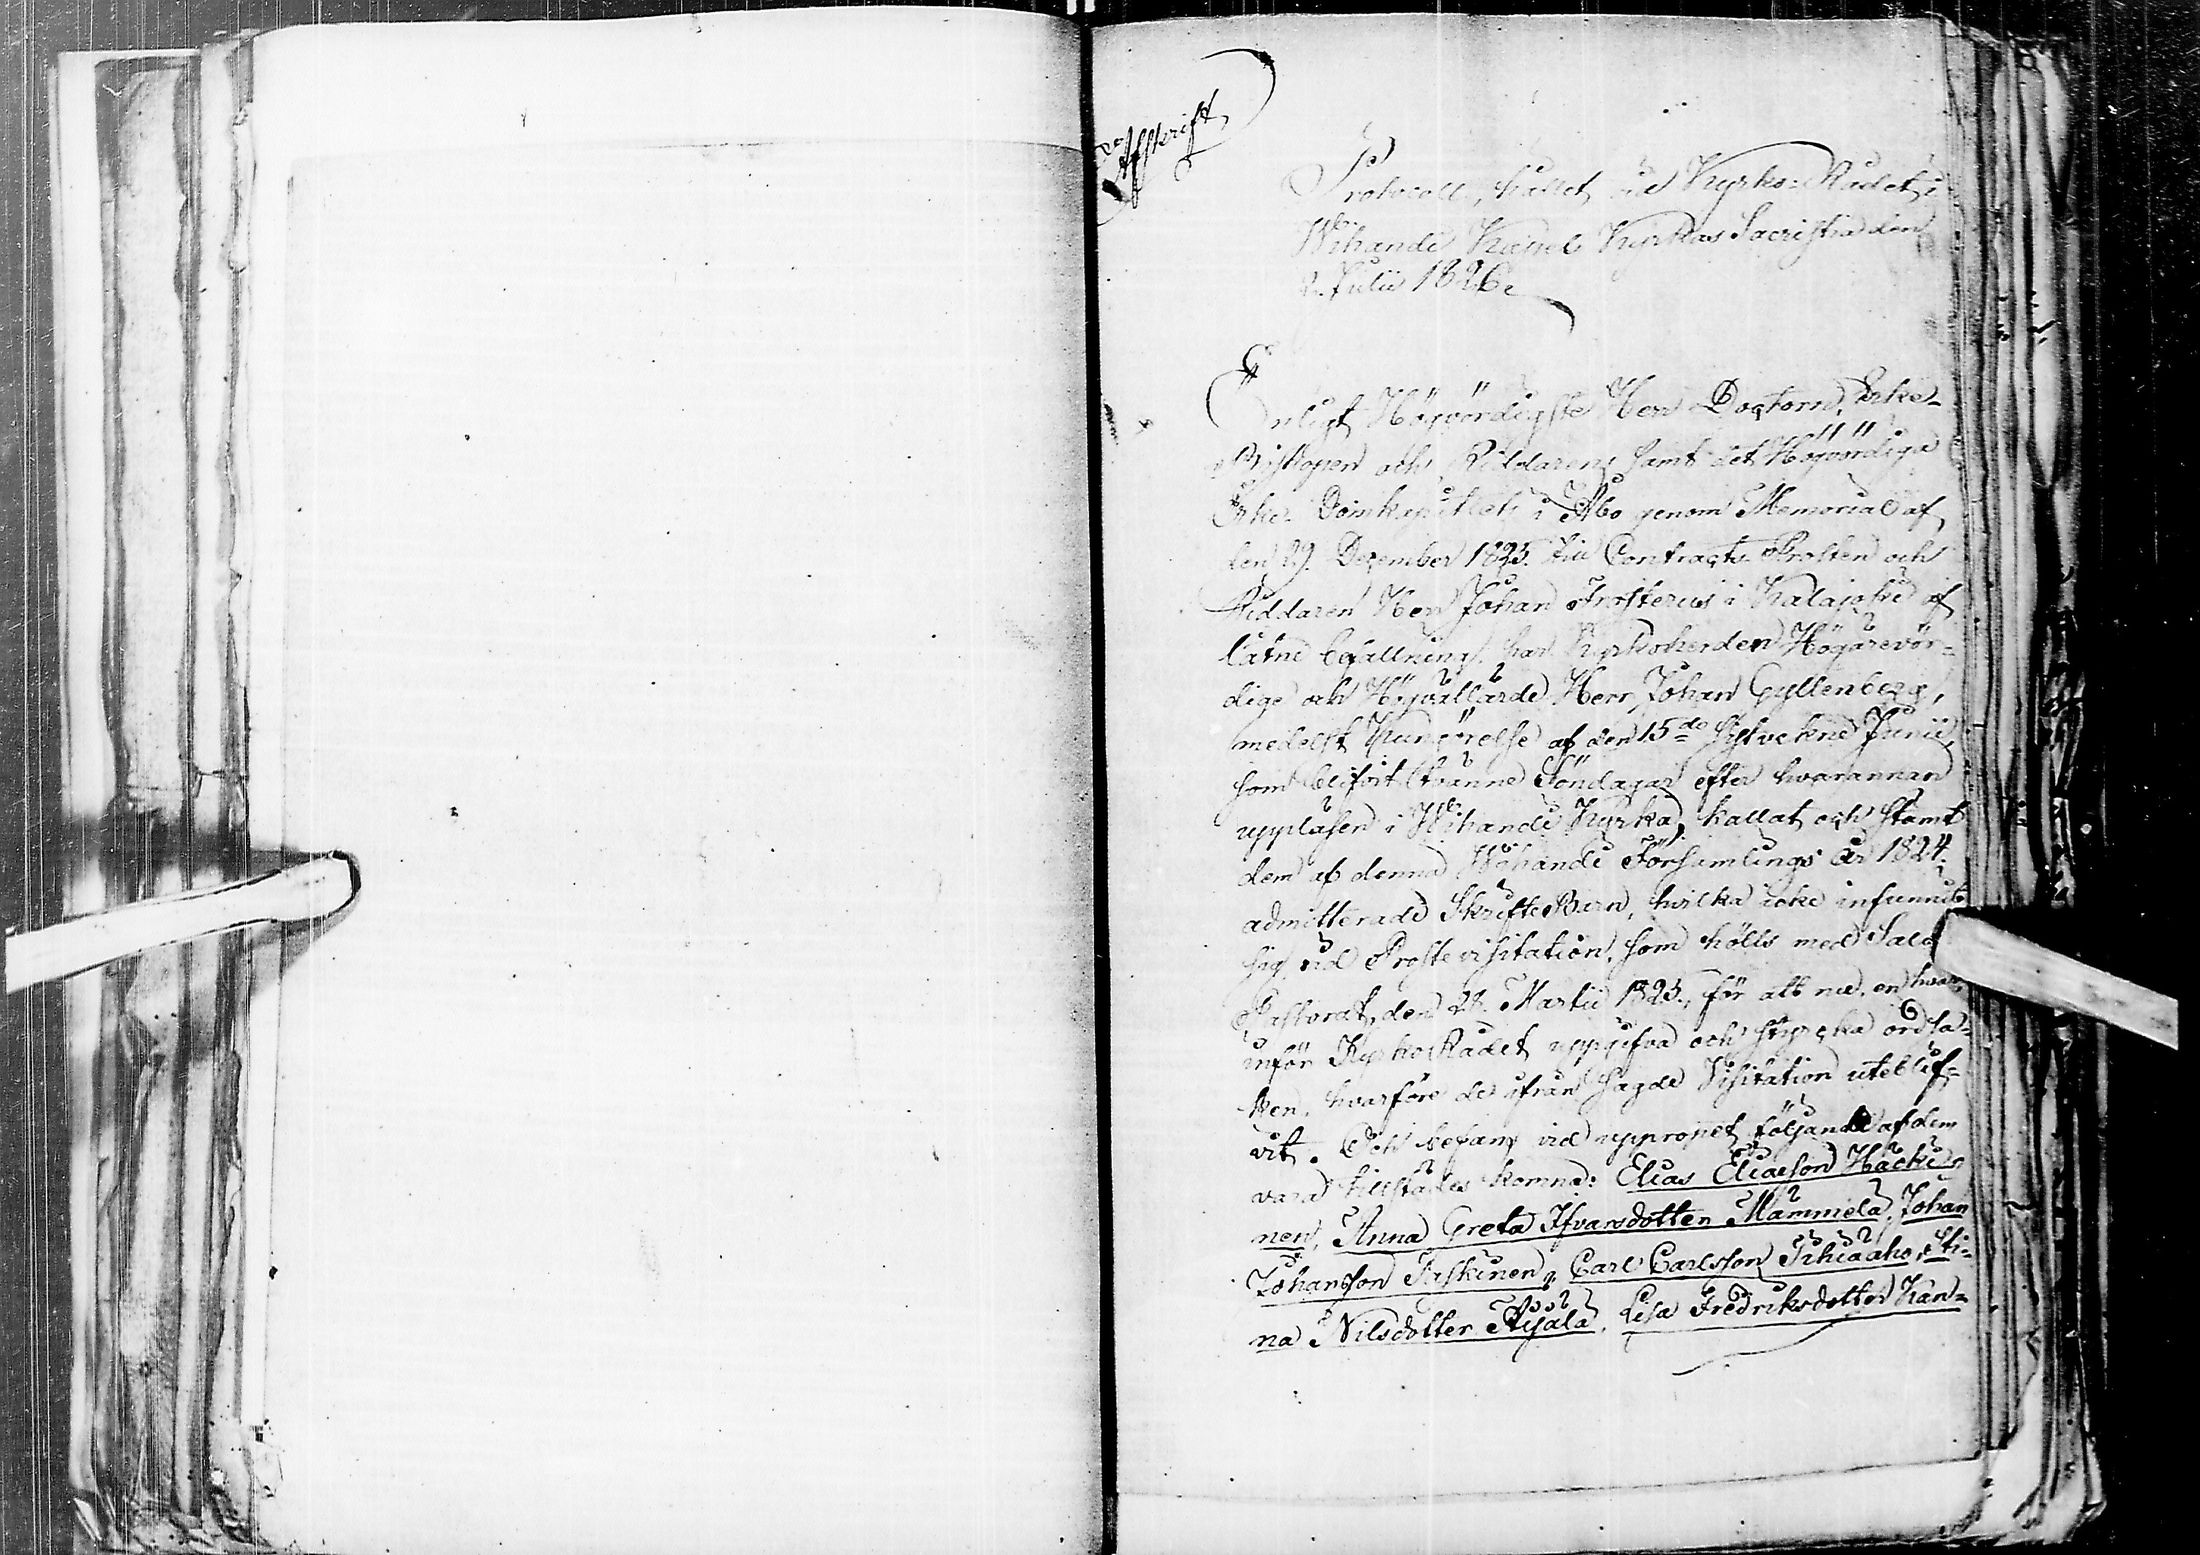 Afskrift
Protocoll, hållet vid Kyrko-Rådet i
Wihandi Kapel Kyrkas Sacristia den
2. Julii 1826.
Enligt Högvördigste Herr Doctorn, Erke-
Biskopen och Riddarens samt det Högvördiga
Erke-Domkapitlets i Åbo genom Memorial af
den 29. December 1825. till Contracts-Prosten och
Riddaren Herr Johan Frosterus i Kalajoki af
låtne befallning, har Kyrkoherden Högärevör-
dige och Högvällärde Herr Johan Gyllenberg,
medelst Kungörelse af den 15de sistvekne Junii,
som blifvit tvänne Söndagar efter hvarannan
uppläsen i Wihandi Kyrka, kallat och stämt
dem af denna Wihandi Församlings år 1824.
admitterade SkrifteBarn, hvilka icke infunnit
sig vid Prostevisitation, som hölls med Salo
Pastorat, den 28. Martii 1825., för att nu, en hvar
inför KyrkoRådet uppgifva och styrcka ordsa-
ken, hvarföre de ifrån sagde Visitation uteblif-
vit. Och befans vid uppropet följande af dem
vara tillstädes komna: Elias Eliaeson Häcki-
nen, Anna Greta Ifvarsdotter Mämmelä, Johan
Johansson Taskinen, Carl Carlsson Pihlaaho, Sti-
na Nilsdotter Äijälä, Lisa Fredriksdotter Kan-